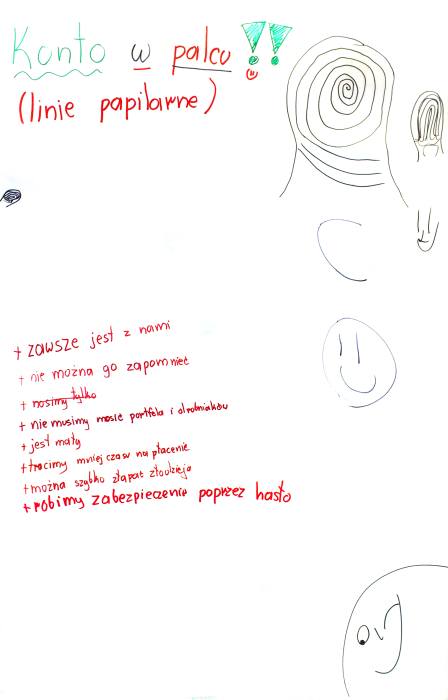 Konto w palcu !!
(linie papilarne)
+ zawsze jest z nami
+ nie można go zapomnieć
+ nosimy tylko
+ nie musimy nosić portfela i drobniaków
+ jest mały
+ tracimy mniej czasu na płacenie
+ można szybko złapać złodzieja
+ robimy zabezpieczenie poprzez hasło